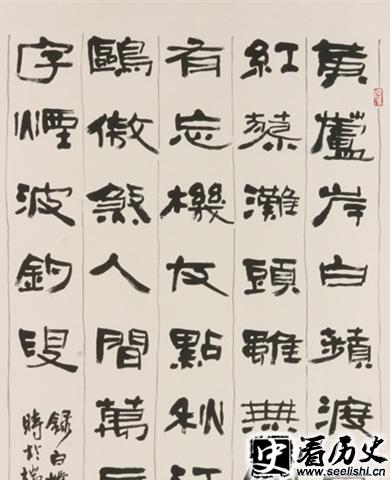 黃蘆岸白蘋渡
紅蓼灘頭雖無
有忘機友點秋江
鷗傲煞人間萬戶
字煙波釣叟
錄白樸
時於
史 看历史
www.seelishi.cn